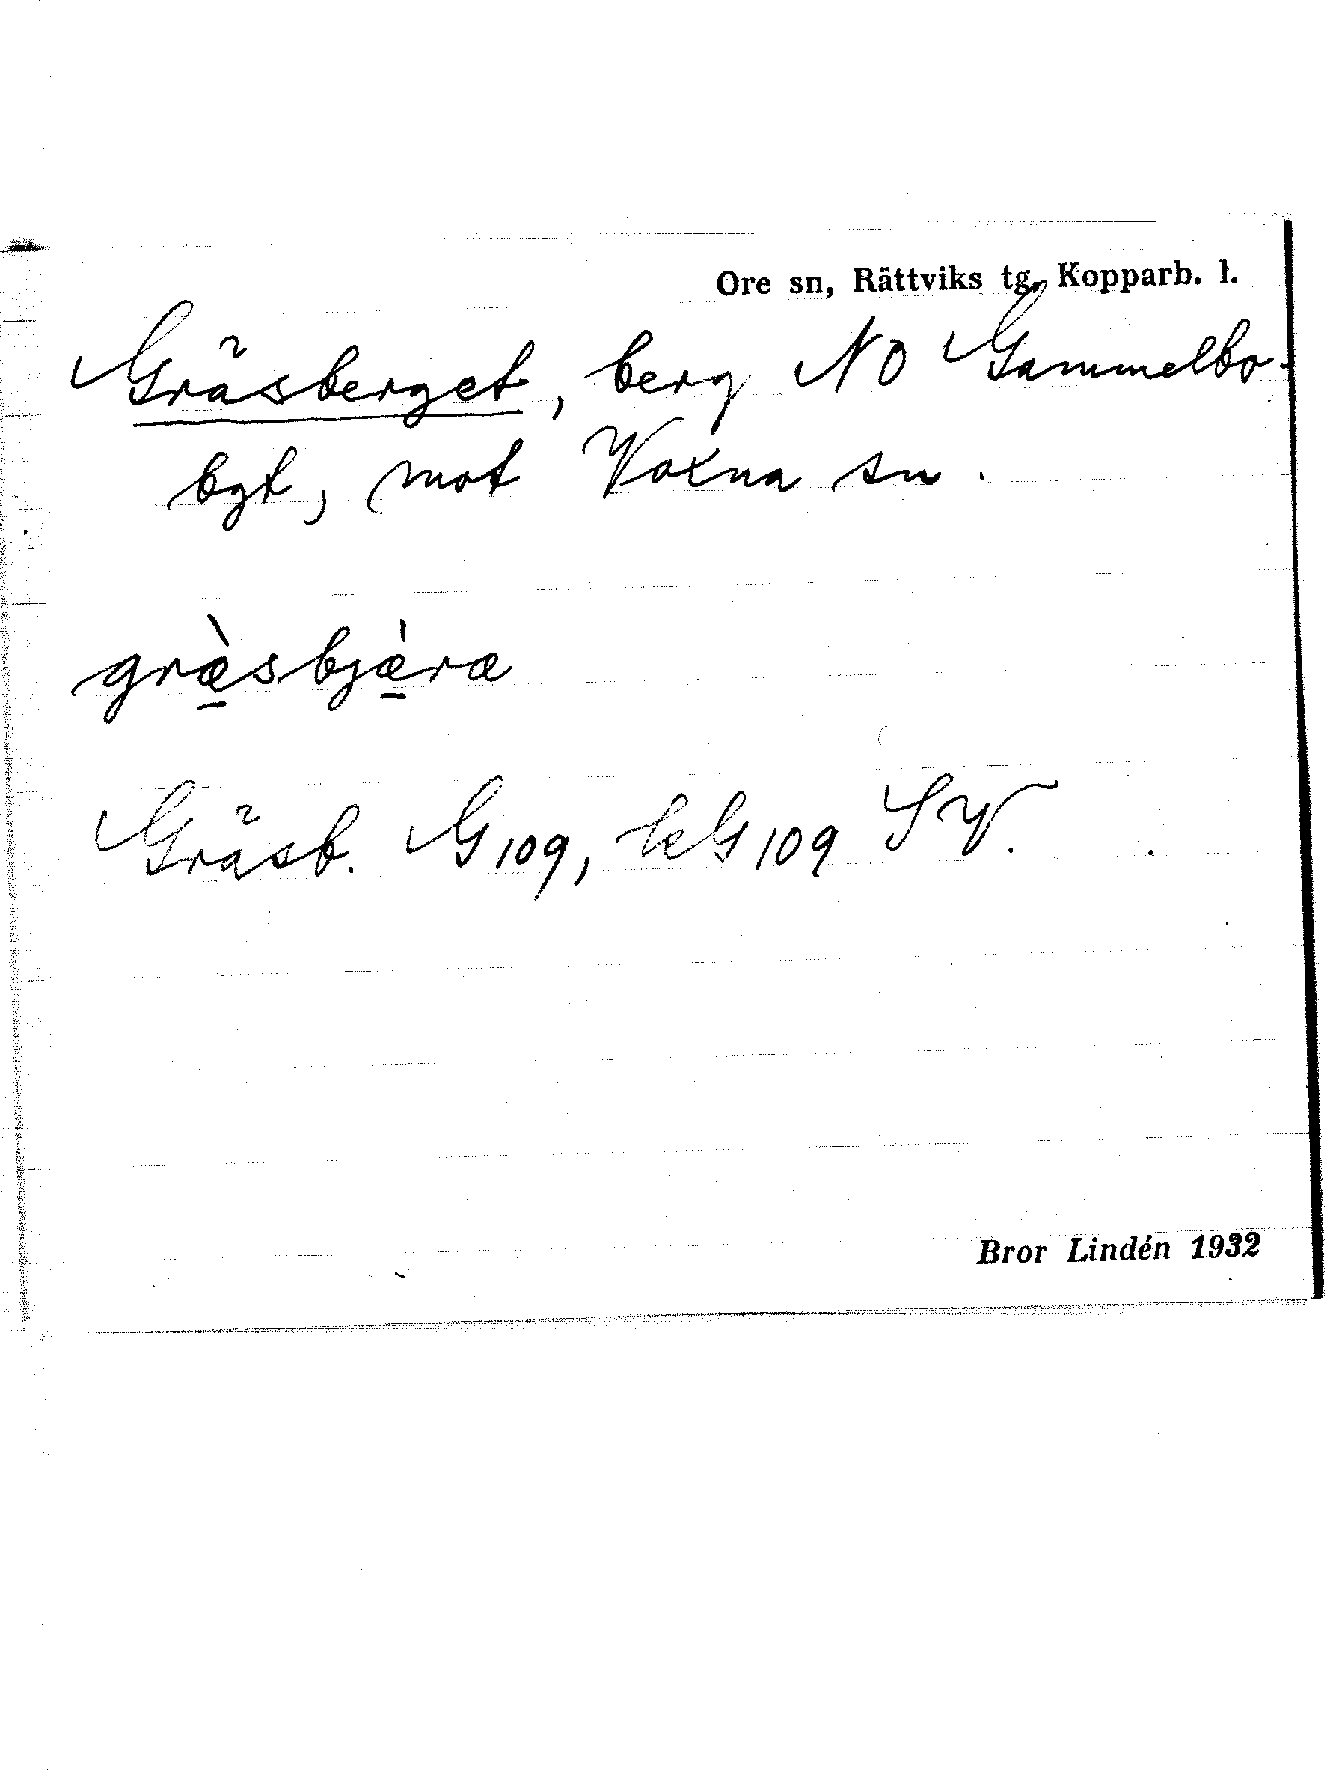 Ore sn, Rättviks tg, Kopparb. l.
Gräsberget, berg NO Gammelbo-
bgt, mot Voxna sn.
græ̠̀sbjæ̠̀ra
Gräsb. G109, kG109 SV.
Bror Lindén 1932